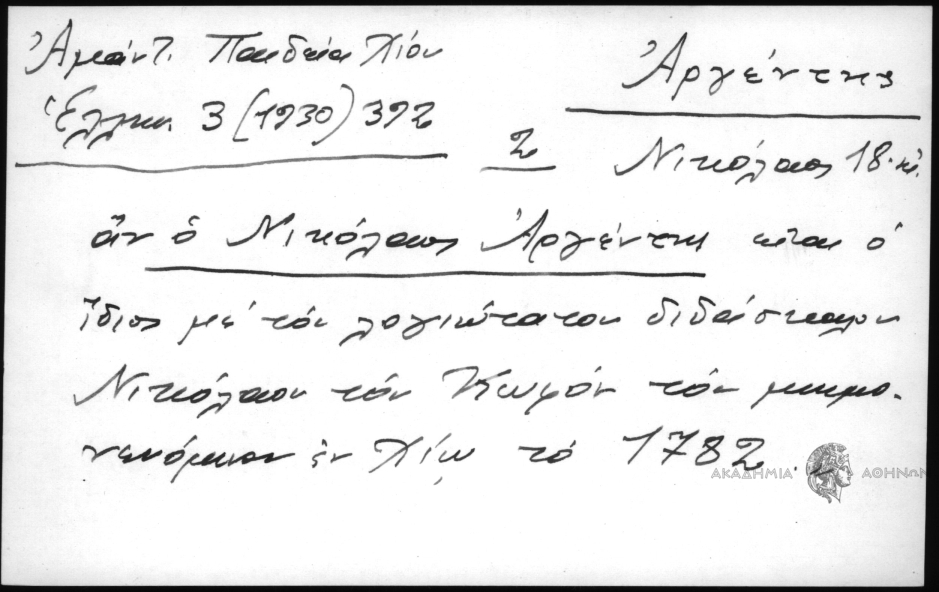 Ἀμάντ. Παιδεία Χίου
Ἑλλην. 3 (1930) 392
Ἀργέντης
2
Νικόλαος 18. αἰ.
ἂν ὁ Νικόλαος Ἀργέντης εἶναι ὁ
ἴδιος μέ τόν λογιώτατον διδάσκαλον
Νικόλαον τόν Κωφόν τόν μνημο-
νευόμενον ἐν Χίῳ τό 1782..
ΑΚΑΔΗΜΙΑ ΑΘΗΝΩΝ